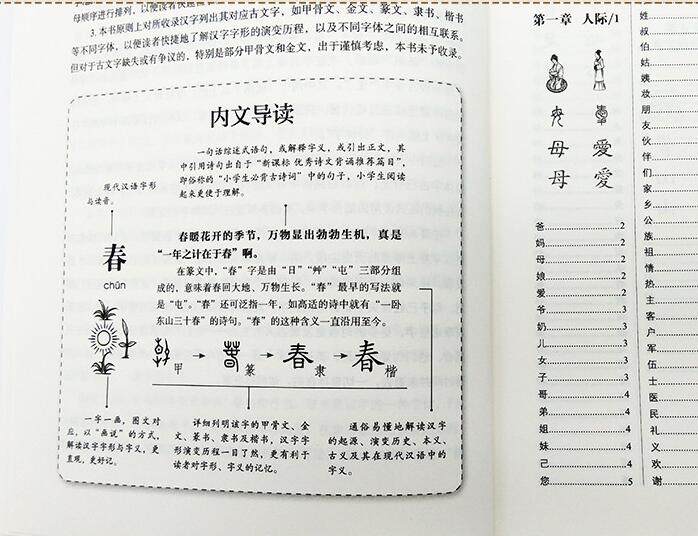 母顺序进行排列，以便读者快速
3. 本书原则上对所收录汉字列出其对应古文字，如甲骨文、金文、篆文、隶书、楷书
等不同字体，以便读者快捷地了解汉字字形的演变历程，以及不同字体之间的相互联系。
但对于古文字缺失或有争议的，特别是部分甲骨文和金文，出于谨慎考虑，本书未予收录。
内文导读
一句话综述式语句，或解释字义，或引出正文，其
中引用诗句出自于“新课标 优秀诗文背诵推荐篇目”，
即俗称的“小学生必背古诗词”中的句子，小学生阅读
起来更便于理解。
现代汉语字形
与读音。
春
chūn
春暖花开的季节，万物显出勃勃生机，真是
“一年之计在于春”啊。
在篆文中，“春”字是由“日”“艸”“屯”三部分组
成的，意味着春回大地、万物生长。“春”最早的写法就
是“屯”。“春”还可泛指一年，如高适的诗中就有“一卧
东山三十春”的诗句。“春”的这种含义一直沿用至今。
甲 篆 春 隶 春 楷
一字一画，图文对
应，以“画说”的方式，
解读汉字字形与字义，更
直观，更好记。
详细列明该字的甲骨文、金
文、篆书、隶书及楷书，汉字字
形演变历程一目了然，更有利于
读者对字形、字义的记忆。
通俗易懂地解读汉字
的起源、演变历史、本义、
古义及其在现代汉语中的
字义。
第一章 人际/1
母 愛
母 愛
爸 2
妈 2
母 2
娘 2
爱 2
爷 3
奶 3
儿 3
女 3
子 3
哥 4
弟 4
姐 4
妹 4
己 4
您 5
姓
叔
伯
姑
姨
妆
朋
友
伙
伴
们
家
乡
公
族
祖
情
热
主
客
户
军
伍
士
医
民
礼
义
欢
谢